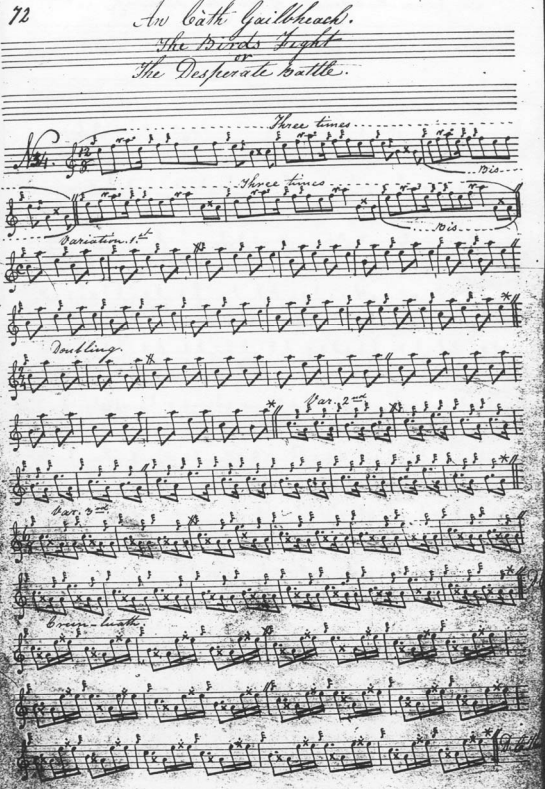 72
An Cath Gailbheach.
The Birds Fight
or
The Desperate Battle.
Three times
Bis
Three times
Bis
Variation 1.st
Doubling.
Var. 2nd
Var. 3rd
Crun-luath.